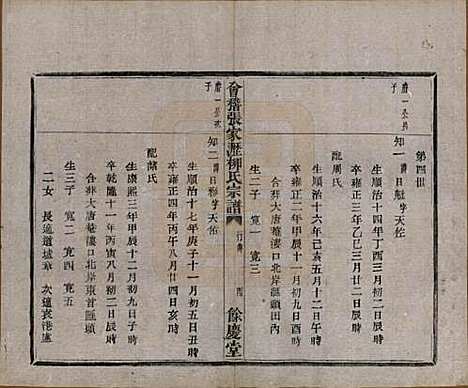 第四世
應一公長子
知一 諱曰 字天佑
生順治十四年丁酉三月初二日辰時
卒雍正三年乙巳三月廿二日辰時
配周氏
生順治十六年己亥五月十二日午時
卒雍正二年甲辰十一月初九日酉時
合葬大唐菴漊口北岸 頭田內
生二子 寬一 寬三
會稽張家瀝柳氏宗譜
行傳
四
餘慶堂
應一公次子
知二 諱曰 字天佑
生順治十七年庚子十一月初五日丑時
卒雍正四年丙午八月廿四日亥時
配 氏
生康熙三年甲辰十一月初九日子時
卒乾隆十一年丙寅八月初二日辰時
合葬大唐菴漊口北岸東首 頭
生三子 寬二 寬四 寬五
二女 長適道墟章 次適袁港盧